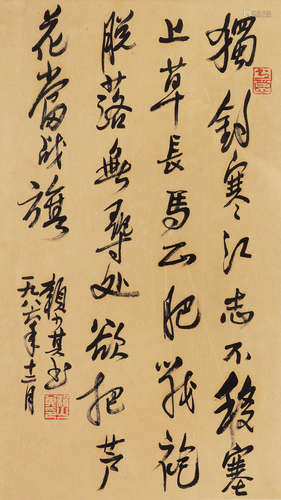 獨釣寒江志不移塞
上草長馬正肥戰袍
脫落無尋处欲把芦
花當战旗
賴少其书
一九八六年十二月